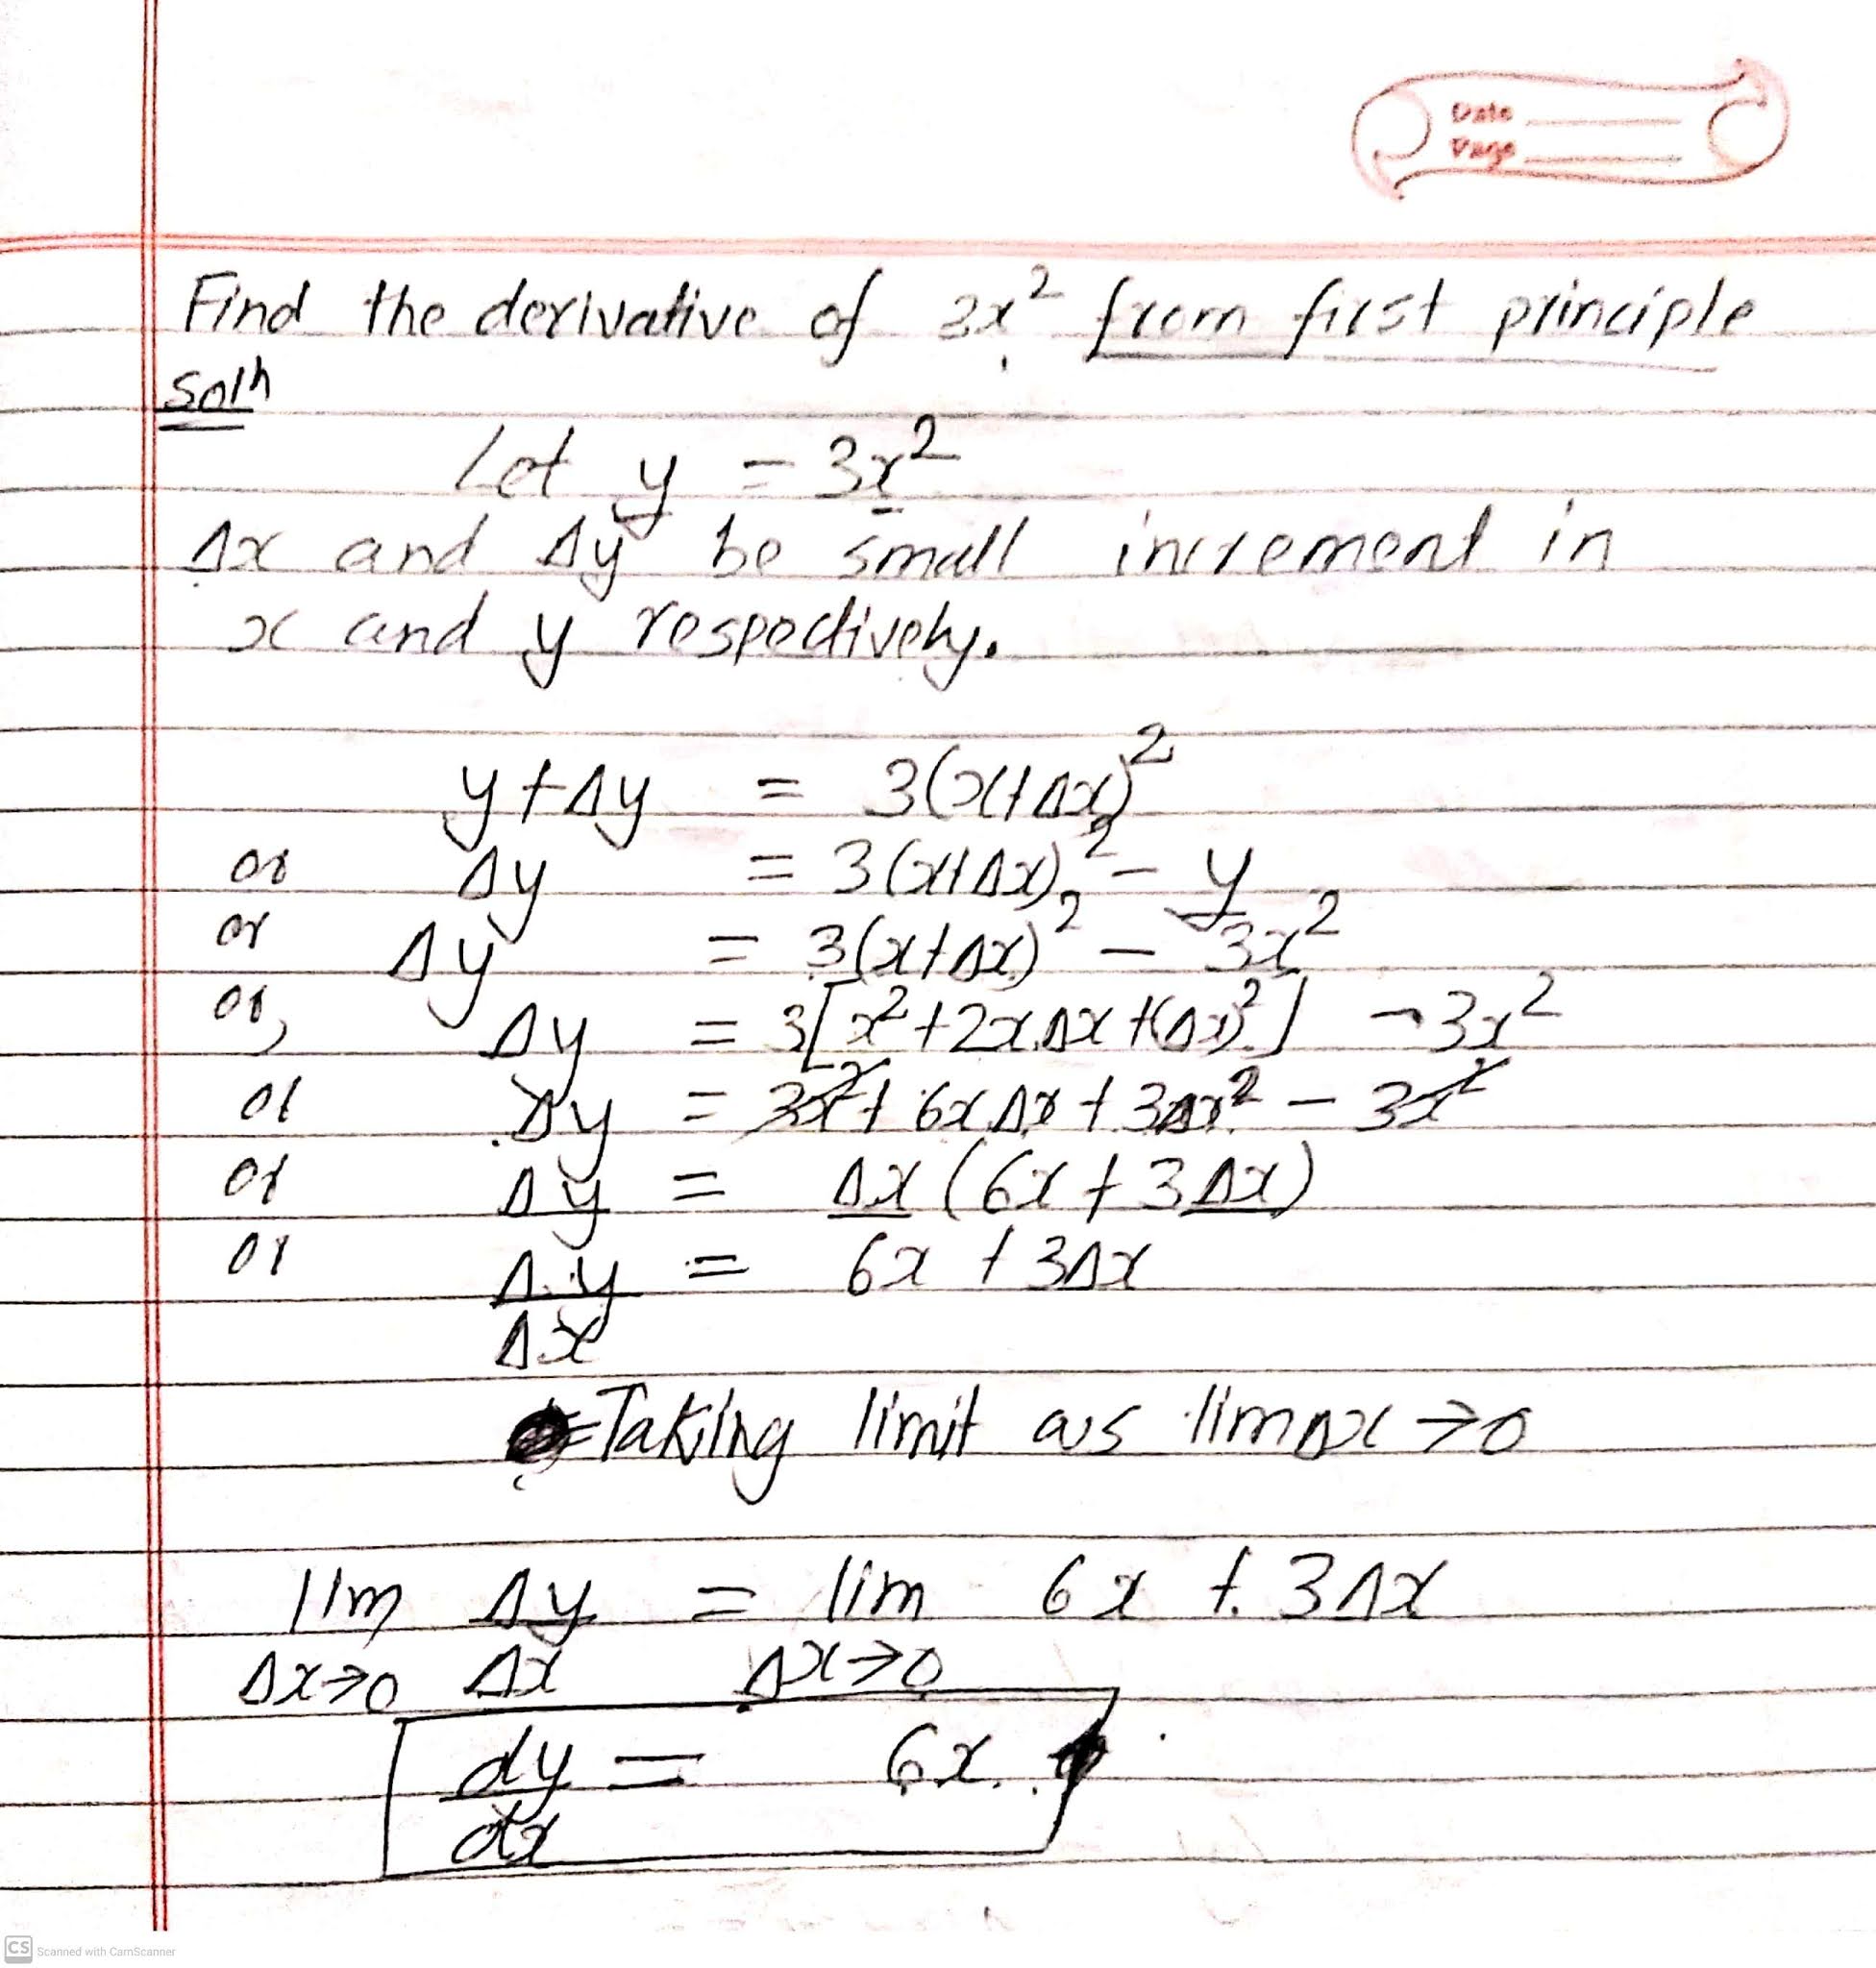 Date
Page
Find the derivative of 3x² from first principle
Soln
Let y = 3x²
Δx and Δy be small increment in
x and y respectively.
y+Δy = 3(x+Δx)²
or Δy = 3(x+Δx)² - y
or Δy = 3(x+Δx)² - 3x²
or, Δy = 3[x²+2x.Δx+(Δx)²] - 3x²
or Δy = 3x² + 6x.Δx + 3Δx² - 3x²
or Δy = Δx (6x + 3Δx)
or Δy/Δx = 6x + 3Δx
Taking limit as lim Δx→0
lim Δx→0 Δy/Δx = lim Δx→0 6x + 3Δx
dy/dx = 6x.
CS Scanned with CamScanner